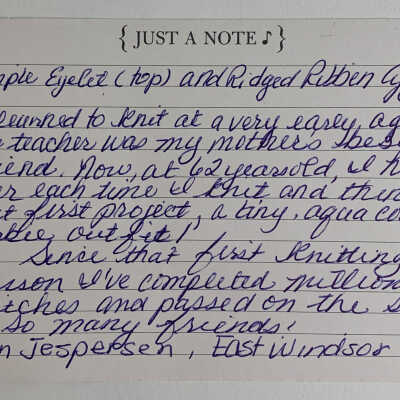 { JUST A NOTE ♪ }
ple Eyelet (top) and Ridged Ribben Ey
learned to knit at a very early ag
teacher was my mother's bes
iend. Now, at 62 years old, I h
er each time I knit and thin
t first project, a tiny, aqua co
bie outfit!
Since that first knitting
sson I've completed million
itches and passed on the s
so many friends!
n Jespersen, East Windsor